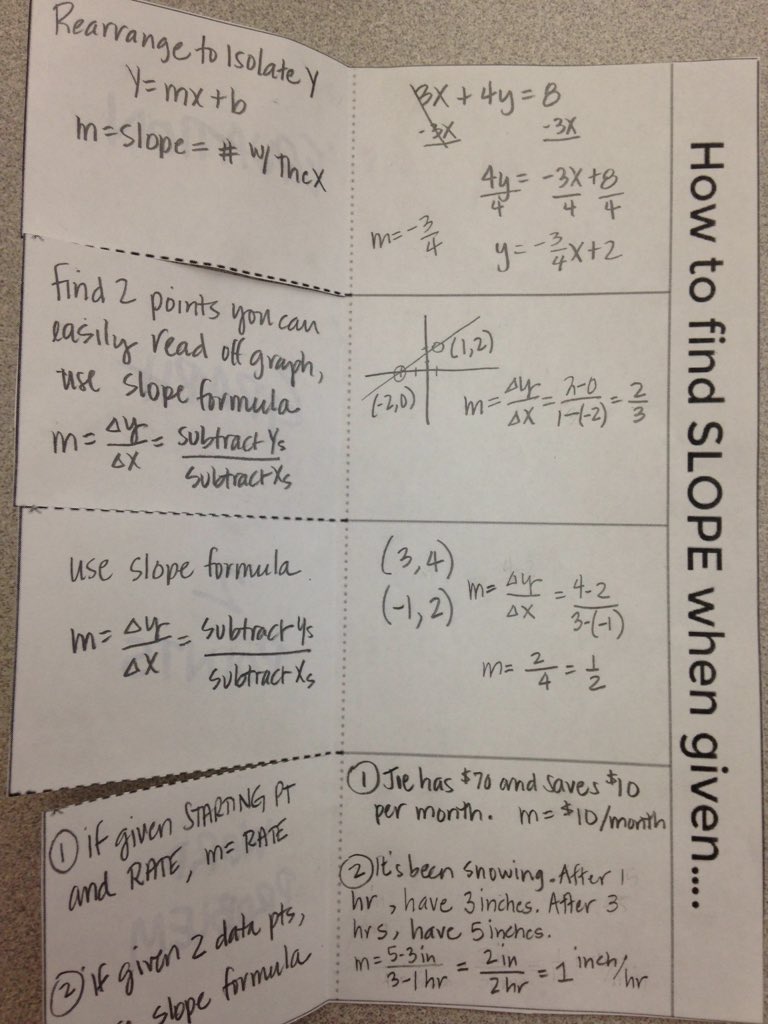 How to find SLOPE when given....
Rearrange to Isolate Y
Y=mx+b
m=slope= # w/ the X
3X + 4y = 8
-3X -3X
4y/4 = -3X/4 + 8/4
m= -3/4
y= -3/4x+2
find 2 points you can
easily read off graph,
use slope formula
m= Δy/ΔX = subtract Ys/subtract Xs
(1,2)
(-2,0)
m= Δy/ΔX = 2-0/1-(-2) = 2/3
use slope formula.
m= Δy/ΔX = subtract Ys/subtract Xs
(3,4)
(-1,2)
m= Δy/ΔX = 4-2/3-(-1)
m= 2/4 = 1/2
① if given STARTING PT
and RATE, m= RATE
② if given 2 data pts,
slope formula
① Joe has $70 and saves $10
per month. m= $10/month
② It's been snowing. After 1
hr, have 3 inches. After 3
hrs, have 5 inches.
m= 5-3in/3-1hr = 2in/2hr = 1 inch/hr